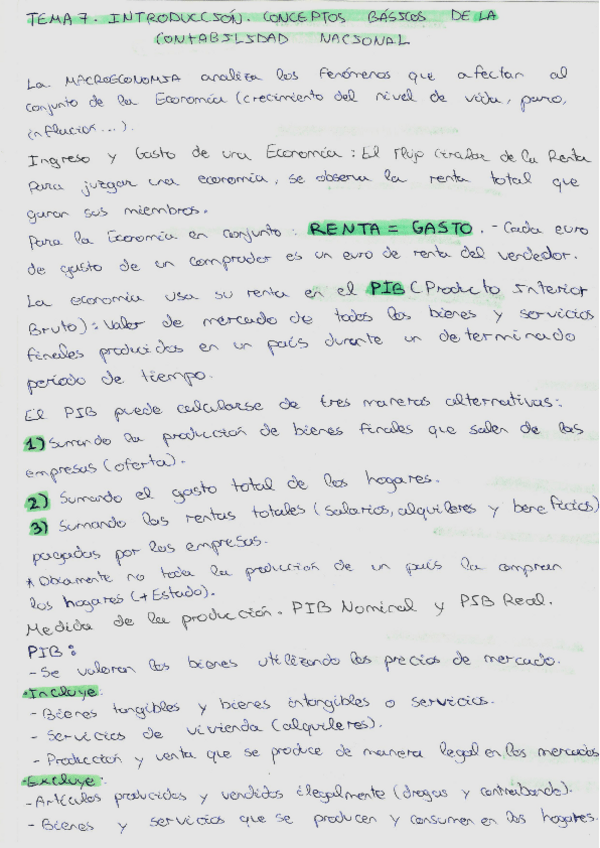 TEMA 7. INTRODUCCIÓN. CONCEPTOS BÁSICOS DE LA
CONTABILIDAD NACIONAL
La MACROECONOMIA analiza los fenómenos que afectan al
conjunto de la Economía (crecimiento del nivel de vida, paro,
inflación...).
Ingreso y Gasto de una Economía: El Flujo circular de la Renta
Para juzgar una economía, se observa la renta total que
ganan sus miembros.
Para la Economía en conjunto: RENTA = GASTO. - Cada euro
de gasto de un comprador es un euro de renta del vendedor.
La economía usa su renta en el PIB (Producto Interior
Bruto): Valor de mercado de todos los bienes y servicios
finales producidos en un país durante un determinado
período de tiempo.
El PIB puede calcularse de tres maneras alternativas:
1) Sumando la producción de bienes finales que salen de las
empresas (oferta).
2) Sumando el gasto total de los hogares.
3) Sumando las rentas totales (salarios, alquileres y beneficios)
pagadas por las empresas.
* Obviamente no toda la producción de un país la compran
los hogares (+ Estado).
Medida de la producción. PIB Nominal y PIB Real.
PIB:
- Se valoran los bienes utilizando los precios de mercado.
·Incluye:
- Bienes tangibles y bienes intangibles o servicios.
- Servicios de vivienda (alquileres).
- Producción y venta que se produce de manera legal en los mercados
·Excluye:
- Artículos producidos y vendidos ilegalmente (drogas y contrabando).
- Bienes y servicios que se producen y consumen en los hogares.